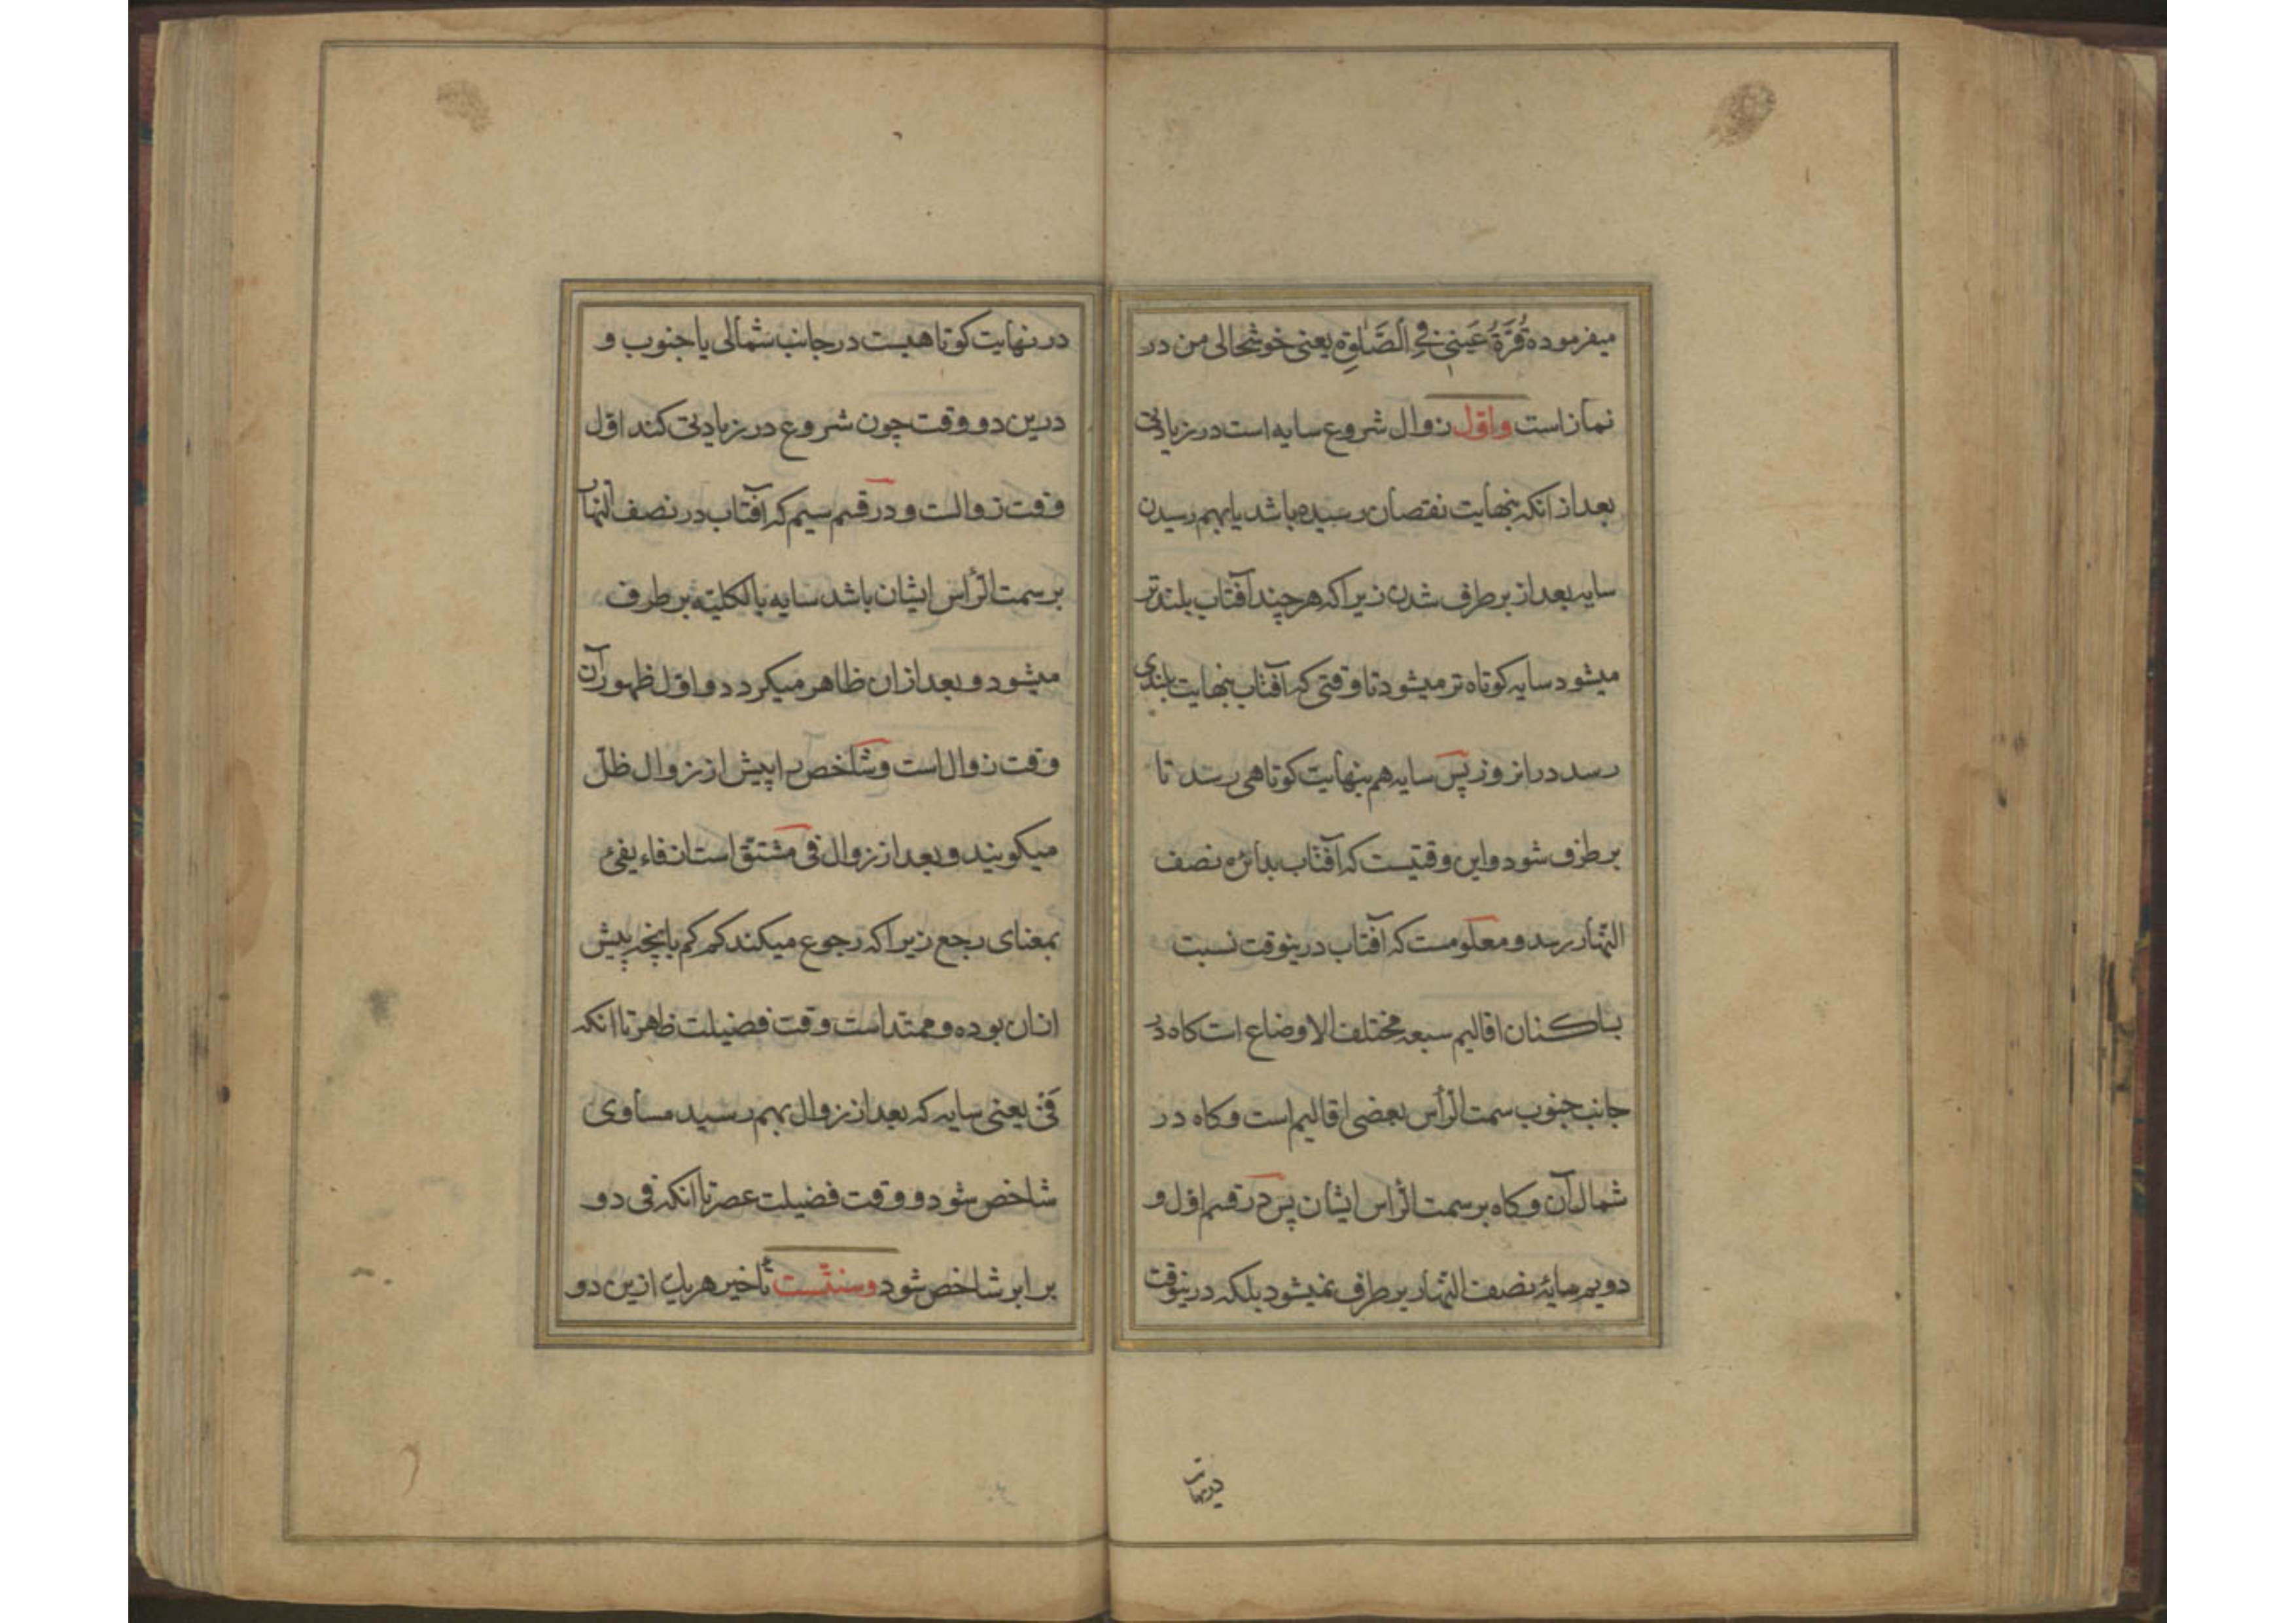 میفرموده قُرَّةُ عَینی فِی الصَّلوٰةِ یعنی خوشحالی من در
نماز است و اوّل زوال شروع سایه است در زیادتی
بعد از انکه بنهایت نقصان رسیده باشد یا بهم رسیدن
سایه بعد از بر طرف شدن زیرا که هر چند آفتاب بلند تر
میشود سایه کوتاه تر میشود تا وقتی که آفتاب بنهایت بلندی
رسد در انروز پس سایه هم بنهایت کوتاهی رسد تا
بر طرف شود و این وقتیست که آفتاب بدائره نصف
النّهار رسد و معلومست که آفتاب درینوقت نسبت
بساکنان اقالیم سبعه مختلف الاوضاع است کاه در
جانب جنوب سمت الرّأس بعضی اقالیم است و کاه در
شمال آن و کاه بر سمت الرّاس ایشان پس در قسم اوّل و
دویم سایهٔ نصف النّهار بر طرف نمیشود بلکه درینوقت
در نهایت
در نهایت کوتاهیست در جانب شمالی یا جنوب و
درین دو وقت چون شروع در زیادتی کند اوّل
وقت زوالست و در قسم سیم که آفتاب در نصف النهار
بر سمت الرّأس ایشان باشد سایه بالکلیّه بر طرف
میشود و بعد از ان ظاهر میکردد و اوّل ظهور آن
وقت زوال است و شاخص را پیش از زوال ظلّ
میکویند و بعد از زوال فی مشتقّ است از فاء یفیٔ
بمعنای رجع زیرا که رجوع میکند کم کم بانچه پیش
ازان بوده و ممتد است وقت فضیلت ظهر تا انکه
فَیٔ یعنی سایه که بعد از زوال بهم رسید مساوی
شاخص شود و وقت فضیلت عصر تا انکه فی دو
برابر شاخص شود و سنّتست تأخیر هر یک ازین دو